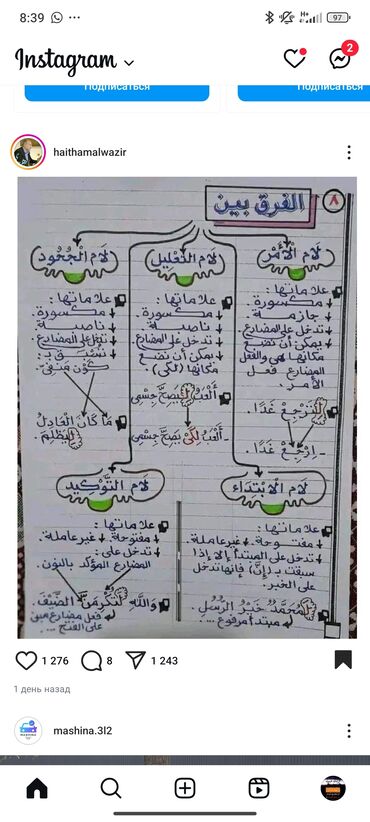 8:39
97
Instagram
2
Подписаться
Подписаться
haithamalwazir
٨
الفرق بين
لَامُ الْأَمْرِ
علاماتها:
مكسورة.
جازمة
تدخل على المضارع.
يمكن أن نضع
مكانها هي والفعل
المضارع فعل
الأمر.
لِتَرْجِعْ غَدًا.
- اِرْجِعْ غَدًا.
لَامُ التَّعْلِيلِ
علاماتها:
مكسورة.
ناصبة
تدخل على المضارع
يمكن أن نضع
مكانها (لكي)
أَلْعَبُ لِيَصِحَّ جِسْمِي
- أَلْعَبُ لِكَيْ يَصِحَّ جِسْمِي
لَامُ الْجُحُودِ
علاماتها:
مكسورة.
ناصبة
تدخل على المضارع.
تُسْبَقُ بـ:
كَوْنٍ مَنْفِيٍّ
مَا كَانَ الْعَادِلُ
لِيَظْلِمَ.
لَامُ الْابْتِدَاءِ
علاماتها:
مفتوحة. غير عاملة.
تدخل على المبتدأ إلا إذا
سبقت بـ (إنَّ) فإنها تدخل
على الخبر.
لَمُحَمَّدٌ خَيْرُ الرُّسُلِ.
مبتدأ مرفوع ....
لَامُ التَّوْكِيدِ
علاماتها:
مفتوحة. غير عاملة
تدخل على:
المضارع المؤكد بالنون.
وَاللَّهِ لَنُكْرِمَنَّ الضَّيْفَ.
فعل مضارع مبني
على الفتح ...
1 276
8
1 243
1 день назад
mashina.3l2